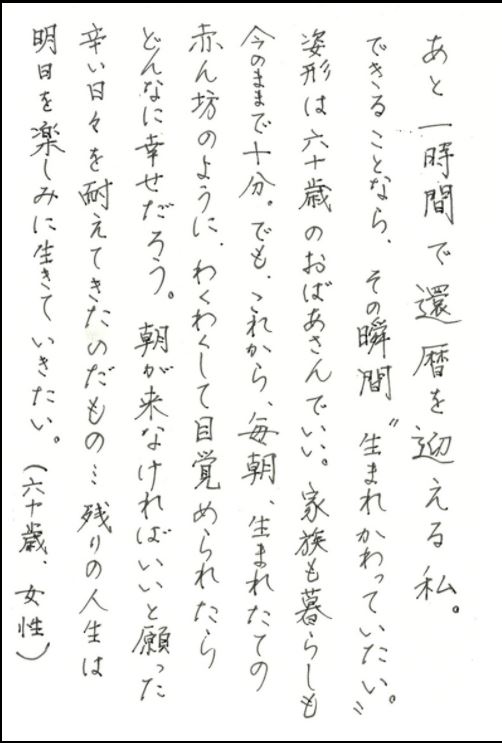 あと一時間で還暦を迎える私。
できることなら、その瞬間〝生まれかわっていたい。〟
姿形は六十歳のおばあさんでいい。家族も暮らしも
今のままで十分。でも、これから、毎朝、生まれたての
赤ん坊のように、わくわくして目覚められたら
どんなに幸せだろう。朝が来なければいいと願った
辛い日々を耐えてきたのだもの…残りの人生は
明日を楽しみに生きていきたい。(六十歳、女性)